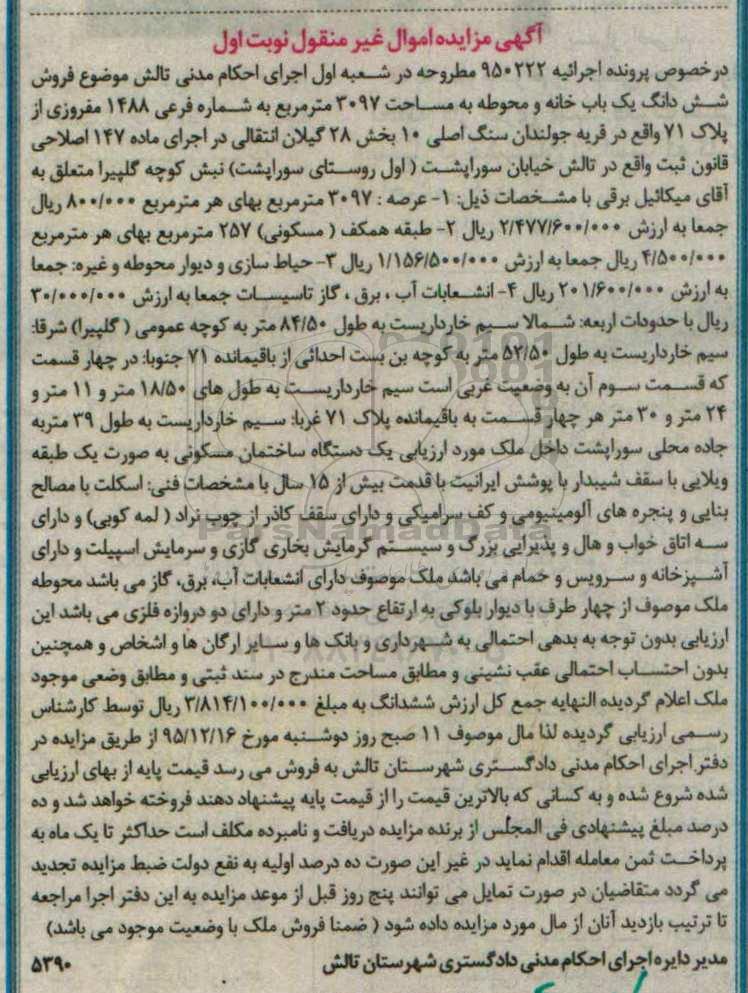 آگهی مزایده اموال غیر منقول نوبت اول
درخصوص پرونده اجرائیه ۹۵۰۲۲۲ مطروحه در شعبه اول اجرای احکام مدنی تالش موضوع فروش
شش دانگ یک باب خانه و محوطه به مساحت ۳۰۹۷ مترمربع به شماره فرعی ۱۴۸۸ مفروزی از
پلاک ۷۱ واقع در قریه جولندان سنگ اصلی ۱۰ بخش ۲۸ گیلان انتقالی در اجرای ماده ۱۴۷ اصلاحی
قانون ثبت واقع در تالش خیابان سوراپشت ( اول روستای سوراپشت) نبش کوچه گلپیرا متعلق به
آقای میکائیل برقی با مشخصات ذیل: ۱- عرصه : ۳۰۹۷ مترمربع بهای هر مترمربع ۸۰۰/۰۰۰ ریال
جمعا به ارزش ۲/۴۷۷/۶۰۰/۰۰۰ ریال ۲- طبقه همکف ( مسکونی) ۲۵۷ مترمربع بهای هر مترمربع
۴/۵۰۰/۰۰۰ ریال جمعا به ارزش ۱/۱۵۶/۵۰۰/۰۰۰ ریال ۳- حیاط سازی و دیوار محوطه و غیره: جمعا
به ارزش ۲۰۱/۶۰۰/۰۰۰ ریال ۴- انشعابات آب ، برق ، گاز تاسیسات جمعا به ارزش ۳۰/۰۰۰/۰۰۰
ریال با حدودات اربعه: شمالا سیم خارداریست به طول ۸۴/۵۰ متر به کوچه عمومی ( گلپیرا) شرقا:
سیم خارداریست به طول ۵۲/۵۰ متر به کوچه بن بست احداثی از باقیمانده ۷۱ جنوبا: در چهار قسمت
که قسمت سوم آن به وضعیت غربی است سیم خارداریست به طول های ۱۸/۵۰ متر و ۱۱ متر و
۲۴ متر و ۳۰ متر هر چهار قسمت به باقیمانده پلاک ۷۱ غربا: سیم خارداریست به طول ۳۹ متربه
جاده محلی سوراپشت داخل ملک مورد ارزیابی یک دستگاه ساختمان مسکونی به صورت یک طبقه
ویلایی با سقف شیبدار با پوشش ایرانیت با قدمت بیش از ۱۵ سال با مشخصات فنی: اسکلت با مصالح
بنایی و پنجره های آلومینیومی و کف سرامیکی و دارای سقف کاذر از چوب نراد ( لمه کوبی) و دارای
سه اتاق خواب و هال و پذیرایی بزرگ و سیستم گرمایش بخاری گازی و سرمایش اسپیلت و دارای
آشپزخانه و سرویس و حمام می باشد ملک موصوف دارای انشعابات آب، برق، گاز می باشد محوطه
ملک موصوف از چهار طرف با دیوار بلوکی به ارتفاع حدود ۲ متر و دارای دو دروازه فلزی می باشد این
ارزیابی بدون توجه به بدهی احتمالی به شهرداری و بانک ها و سایر ارگان ها و اشخاص و همچنین
بدون احتساب احتمالی عقب نشینی و مطابق مساحت مندرج در سند ثبتی و مطابق وضعی موجود
ملک اعلام گردیده النهایه جمع کل ارزش ششدانگ به مبلغ ۳/۸۱۴/۱۰۰/۰۰۰ ریال توسط کارشناس
رسمی ارزیابی گردیده لذا مال موصوف ۱۱ صبح روز دوشنبه مورخ ۹۵/۱۲/۱۶ از طریق مزایده در
دفتر اجرای احکام مدنی دادگستری شهرستان تالش به فروش می رسد قیمت پایه از بهای ارزیابی
شده شروع شده و به کسانی که بالاترین قیمت را از قیمت پایه پیشنهاد دهند فروخته خواهد شد و ده
درصد مبلغ پیشنهادی فی المجلس از برنده مزایده دریافت و نامبرده مکلف است حداکثر تا یک ماه به
پرداخت ثمن معامله اقدام نماید در غیر این صورت ده درصد اولیه به نفع دولت ضبط مزایده تجدید
می گردد متقاضیان در صورت تمایل می توانند پنج روز قبل از موعد مزایده به این دفتر اجرا مراجعه
تا ترتیب بازدید آنان از مال مورد مزایده داده شود ( ضمنا فروش ملک با وضعیت موجود می باشد)
مدیر دایره اجرای احکام مدنی دادگستری شهرستان تالش ۵۳۹۰
ParsNamadData